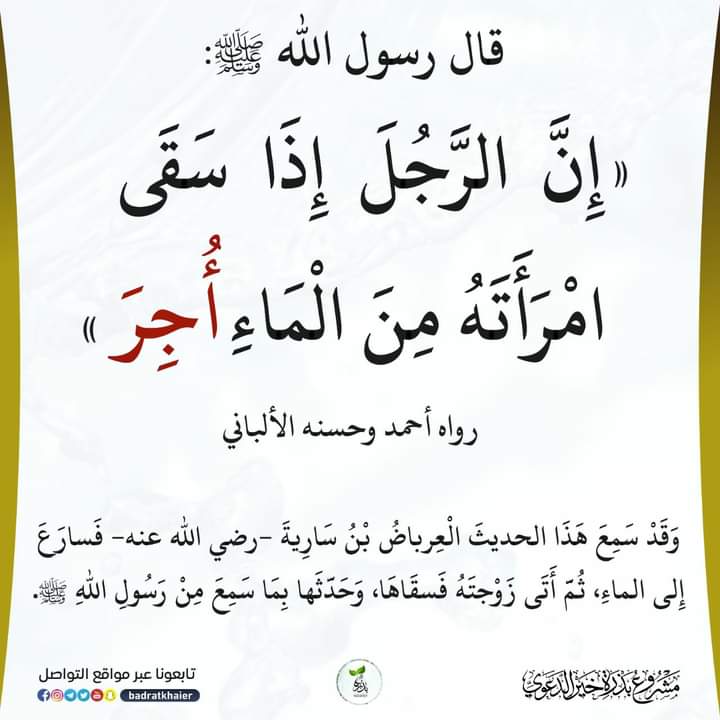 قال رسول الله ﷺ:
« إِنَّ الرَّجُلَ إِذَا سَقَى
امْرَأَتَهُ مِنَ الْمَاءِ أُجِرَ »
رواه أحمد وحسنه الألباني
وَقَدْ سَمِعَ هَذَا الحديثَ الْعِرباضُ بْنُ سَارِيةَ -رضي الله عنه- فَسارَعَ
إِلى الماءِ، ثُمّ أَتَى زَوْجتَهُ فَسقَاهَا، وَحَدّثَها بِمَا سَمِعَ مِنْ رَسُولِ اللهِ ﷺ.
مشروع بذرة خير الدعوي
بذرة
تابعونا عبر مواقع التواصل
badratkhaier